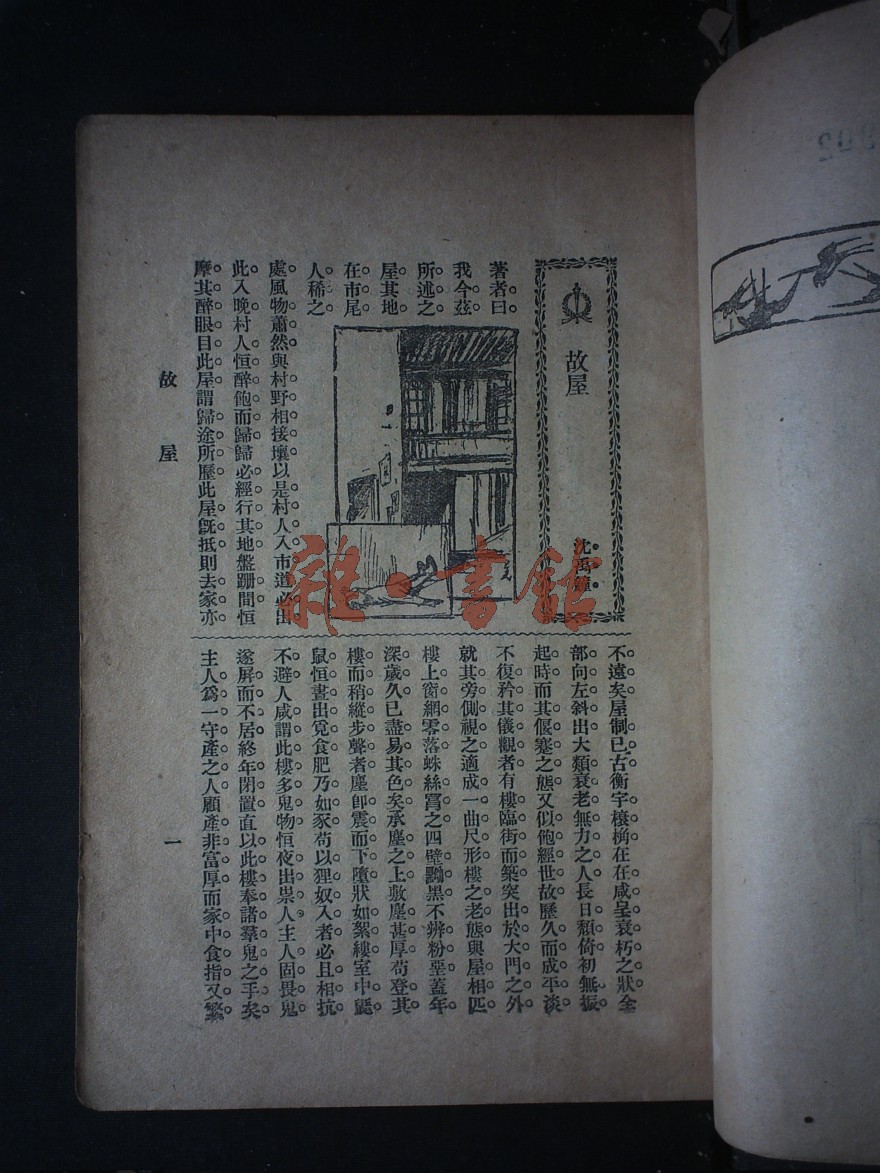 故屋
沈禹鐘
著者曰。
我今茲
所述之
屋。其地
在市尾。
人稀之
處。風物蕭然。與村野相接壤。以是村人入市。道必出
此。入晚村人恒醉飽而歸。歸必經行其地。盤跚間恒
摩其醉眼。目此屋謂歸途所歷。此屋旣抵。則去家亦
不遠矣。屋制已古。衡宇榱桷。在在咸呈衰朽之狀。全
部向左斜出。大類衰老無力之人。長日頹倚。初無振
起時。而其偃蹇之態。又似飽經世故。歷久而成平淡。
不復矜其儀觀者。有樓臨街而築。突出於大門之外。
就其旁側視之。適成一曲尺形。樓之老態。與屋相匹。
樓上窗網零落。蛛絲冪之。四壁黝黑。不辨粉堊。蓋年
深歲久。已盡易其色矣。承塵之上。敷塵甚厚。苟登其
樓而稍縱步聲者。塵卽震而下墮。狀如絮縷。室中鼪
鼠。恒晝出覓食。肥乃如豕。苟以狸奴入者。必且相抗
不避人。咸謂此樓多鬼物。恒夜出祟人。主人固畏鬼。
遂屏而不居。終年閉置。直以此樓奉諸羣鬼之手矣。
主人爲一守產之人。顧產非富厚。而家中食指又繁。
故屋
一
雜·書館